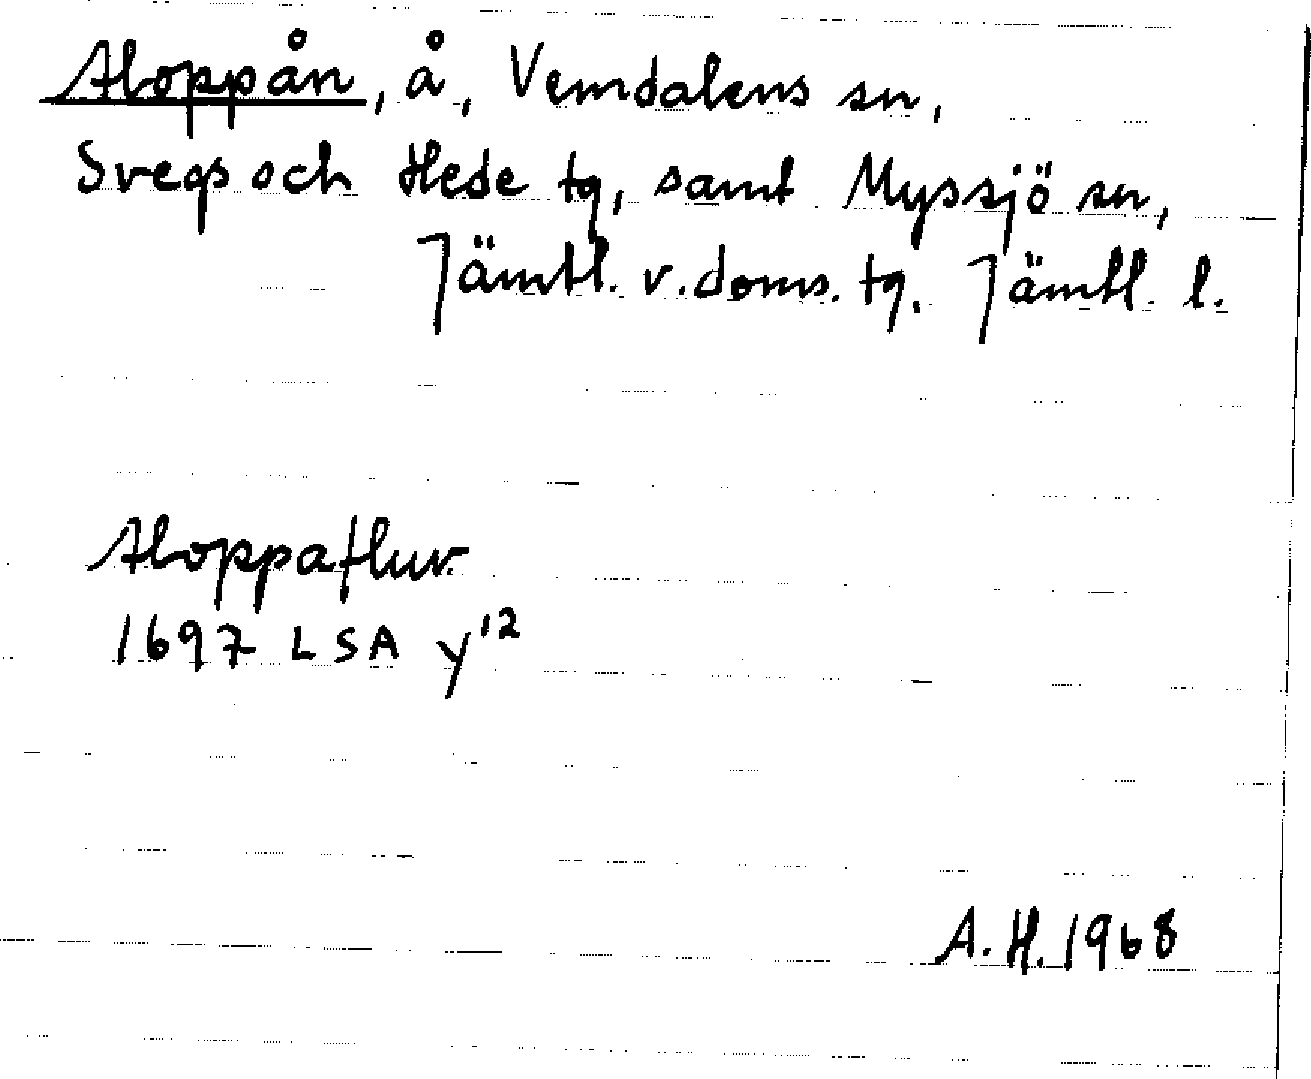 Aloppån, å, Vemdalens sn,
Svegs och Hede tg, samt Myssjö sn,
Jämtl. v. doms. tg. Jämtl. l.
Aloppafluv.
1697 LSA y¹²
A. H. 1968